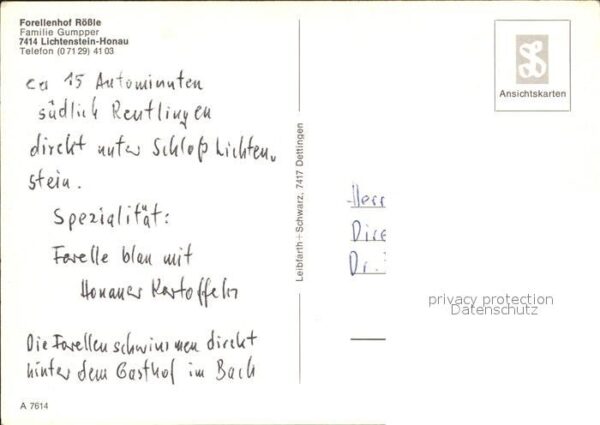 Forellenhof Rößle
Familie Gumpper
7414 Lichtenstein-Honau
Telefon (0 71 29) 41 03
ca 15 Autominuten
südlich Reutlingen
direkt unter Schloß Lichten-
stein.
Spezialität:
Forelle blau mit
Honauer Kartoffeln
Die Forellen schwimmen direkt
hinter dem Gasthof im Bach
A 7614
Leibfarth+Schwarz, 7417 Dettingen
Ansichtskarten
Herr
Dire
Dr.
privacy protection
Datenschutz